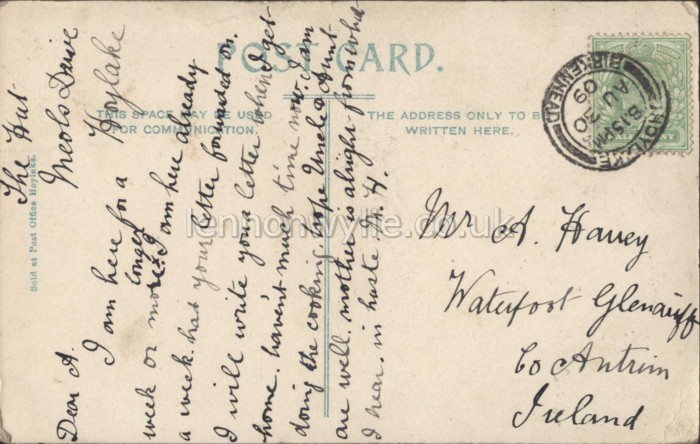 POST CARD.
THIS SPACE MAY BE USED
FOR COMMUNICATION.
THE ADDRESS ONLY TO BE
WRITTEN HERE.
Sold at Post Office Hoylake.
HOYLAKE
BIRKENHEAD
8.15PM
AU 30
09
The Hut
Meols Drive
Hoylake
Dear A.
I am here for a
longer
week or more. I am here already
a week. had your letter forwarded on.
I will write you a letter when I get
home. haven't much time now. I am
doing the cooking. hope Uncle & Aunt
are well. mother is alright from what
I hear. in haste M. H.
Mr A. Harvey
Waterfoot Glenariff
Co Antrim
Ireland
lennonwylie.co.uk